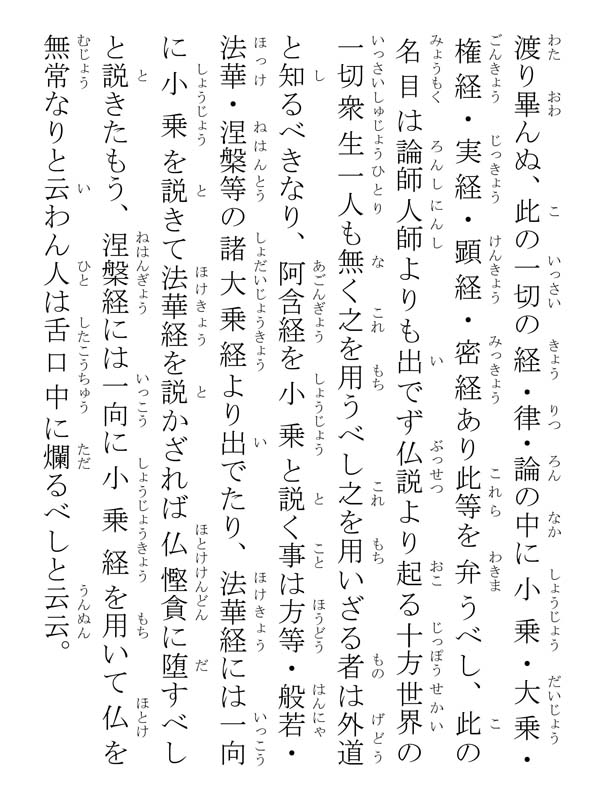 渡り畢んぬ、此の一切の経・律・論の中に小乗・大乗・
権経・実経・顕経・密経あり此等を弁うべし、此の
名目は論師人師よりも出でず仏説より起る十方世界の
一切衆生一人も無く之を用うべし之を用いざる者は外道
と知るべきなり、阿含経を小乗と説く事は方等・般若・
法華・涅槃等の諸大乗経より出でたり、法華経には一向
に小乗を説きて法華経を説かざれば仏慳貪に堕すべし
と説きたもう、涅槃経には一向に小乗経を用いて仏を
無常なりと云わん人は舌口中に爛るべしと云云。